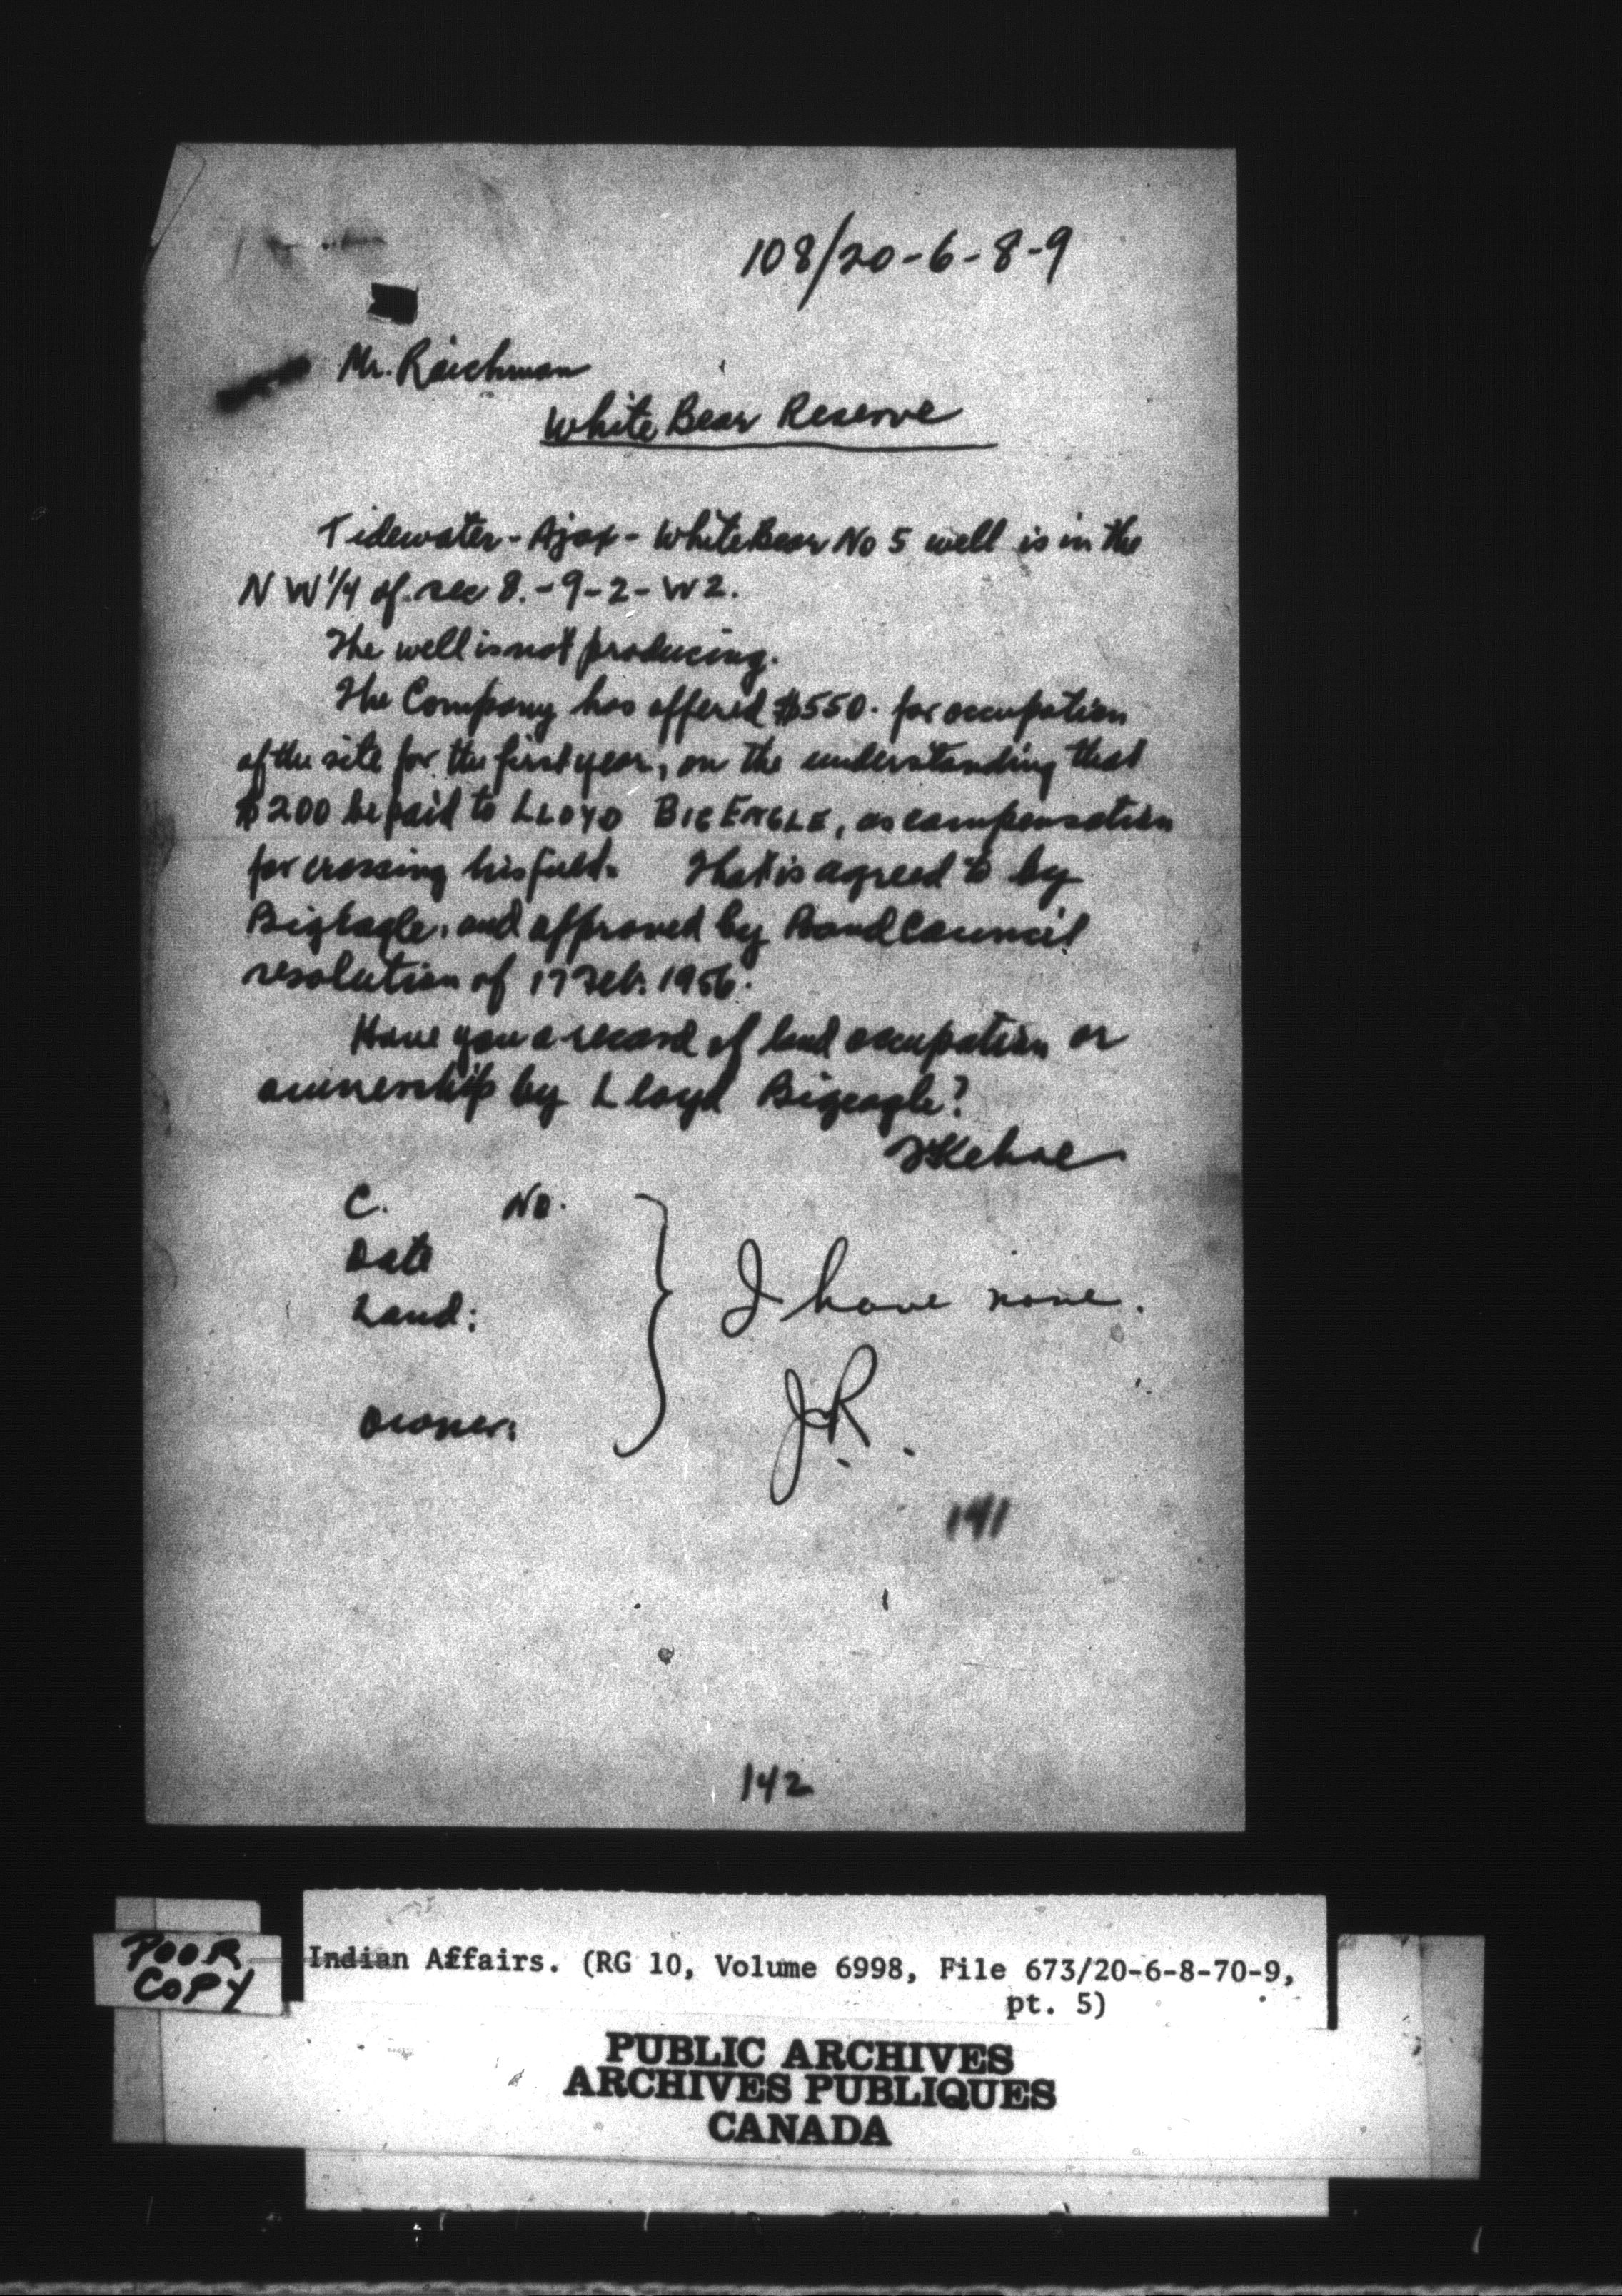 108/20-6-8-9
Mr. Reichman
White Bear Reserve
Tidewater-Ajax-WhiteBear No 5 well is in the
NW1/4 of sec 8.-9-2-W2.
The well is not producing.
The Company has offered $550. for occupation
of the site for the first year, on the understanding that
$200 be paid to LLOYD BIGEAGLE, as compensation
for crossing his field. That is agreed to by
Bigeagle, and approved by Band Council
resolution of 17 Feb. 1956.
Have you a record of land occupation or
ownership by Lloyd Bigeagle?
Kehoe
C. No.
Date
Land:
Owner:
I have none.
J.R.
141
142
POOR
COPY
Indian Affairs. (RG 10, Volume 6998, File 673/20-6-8-70-9,
pt. 5)
PUBLIC ARCHIVES
ARCHIVES PUBLIQUES
CANADA